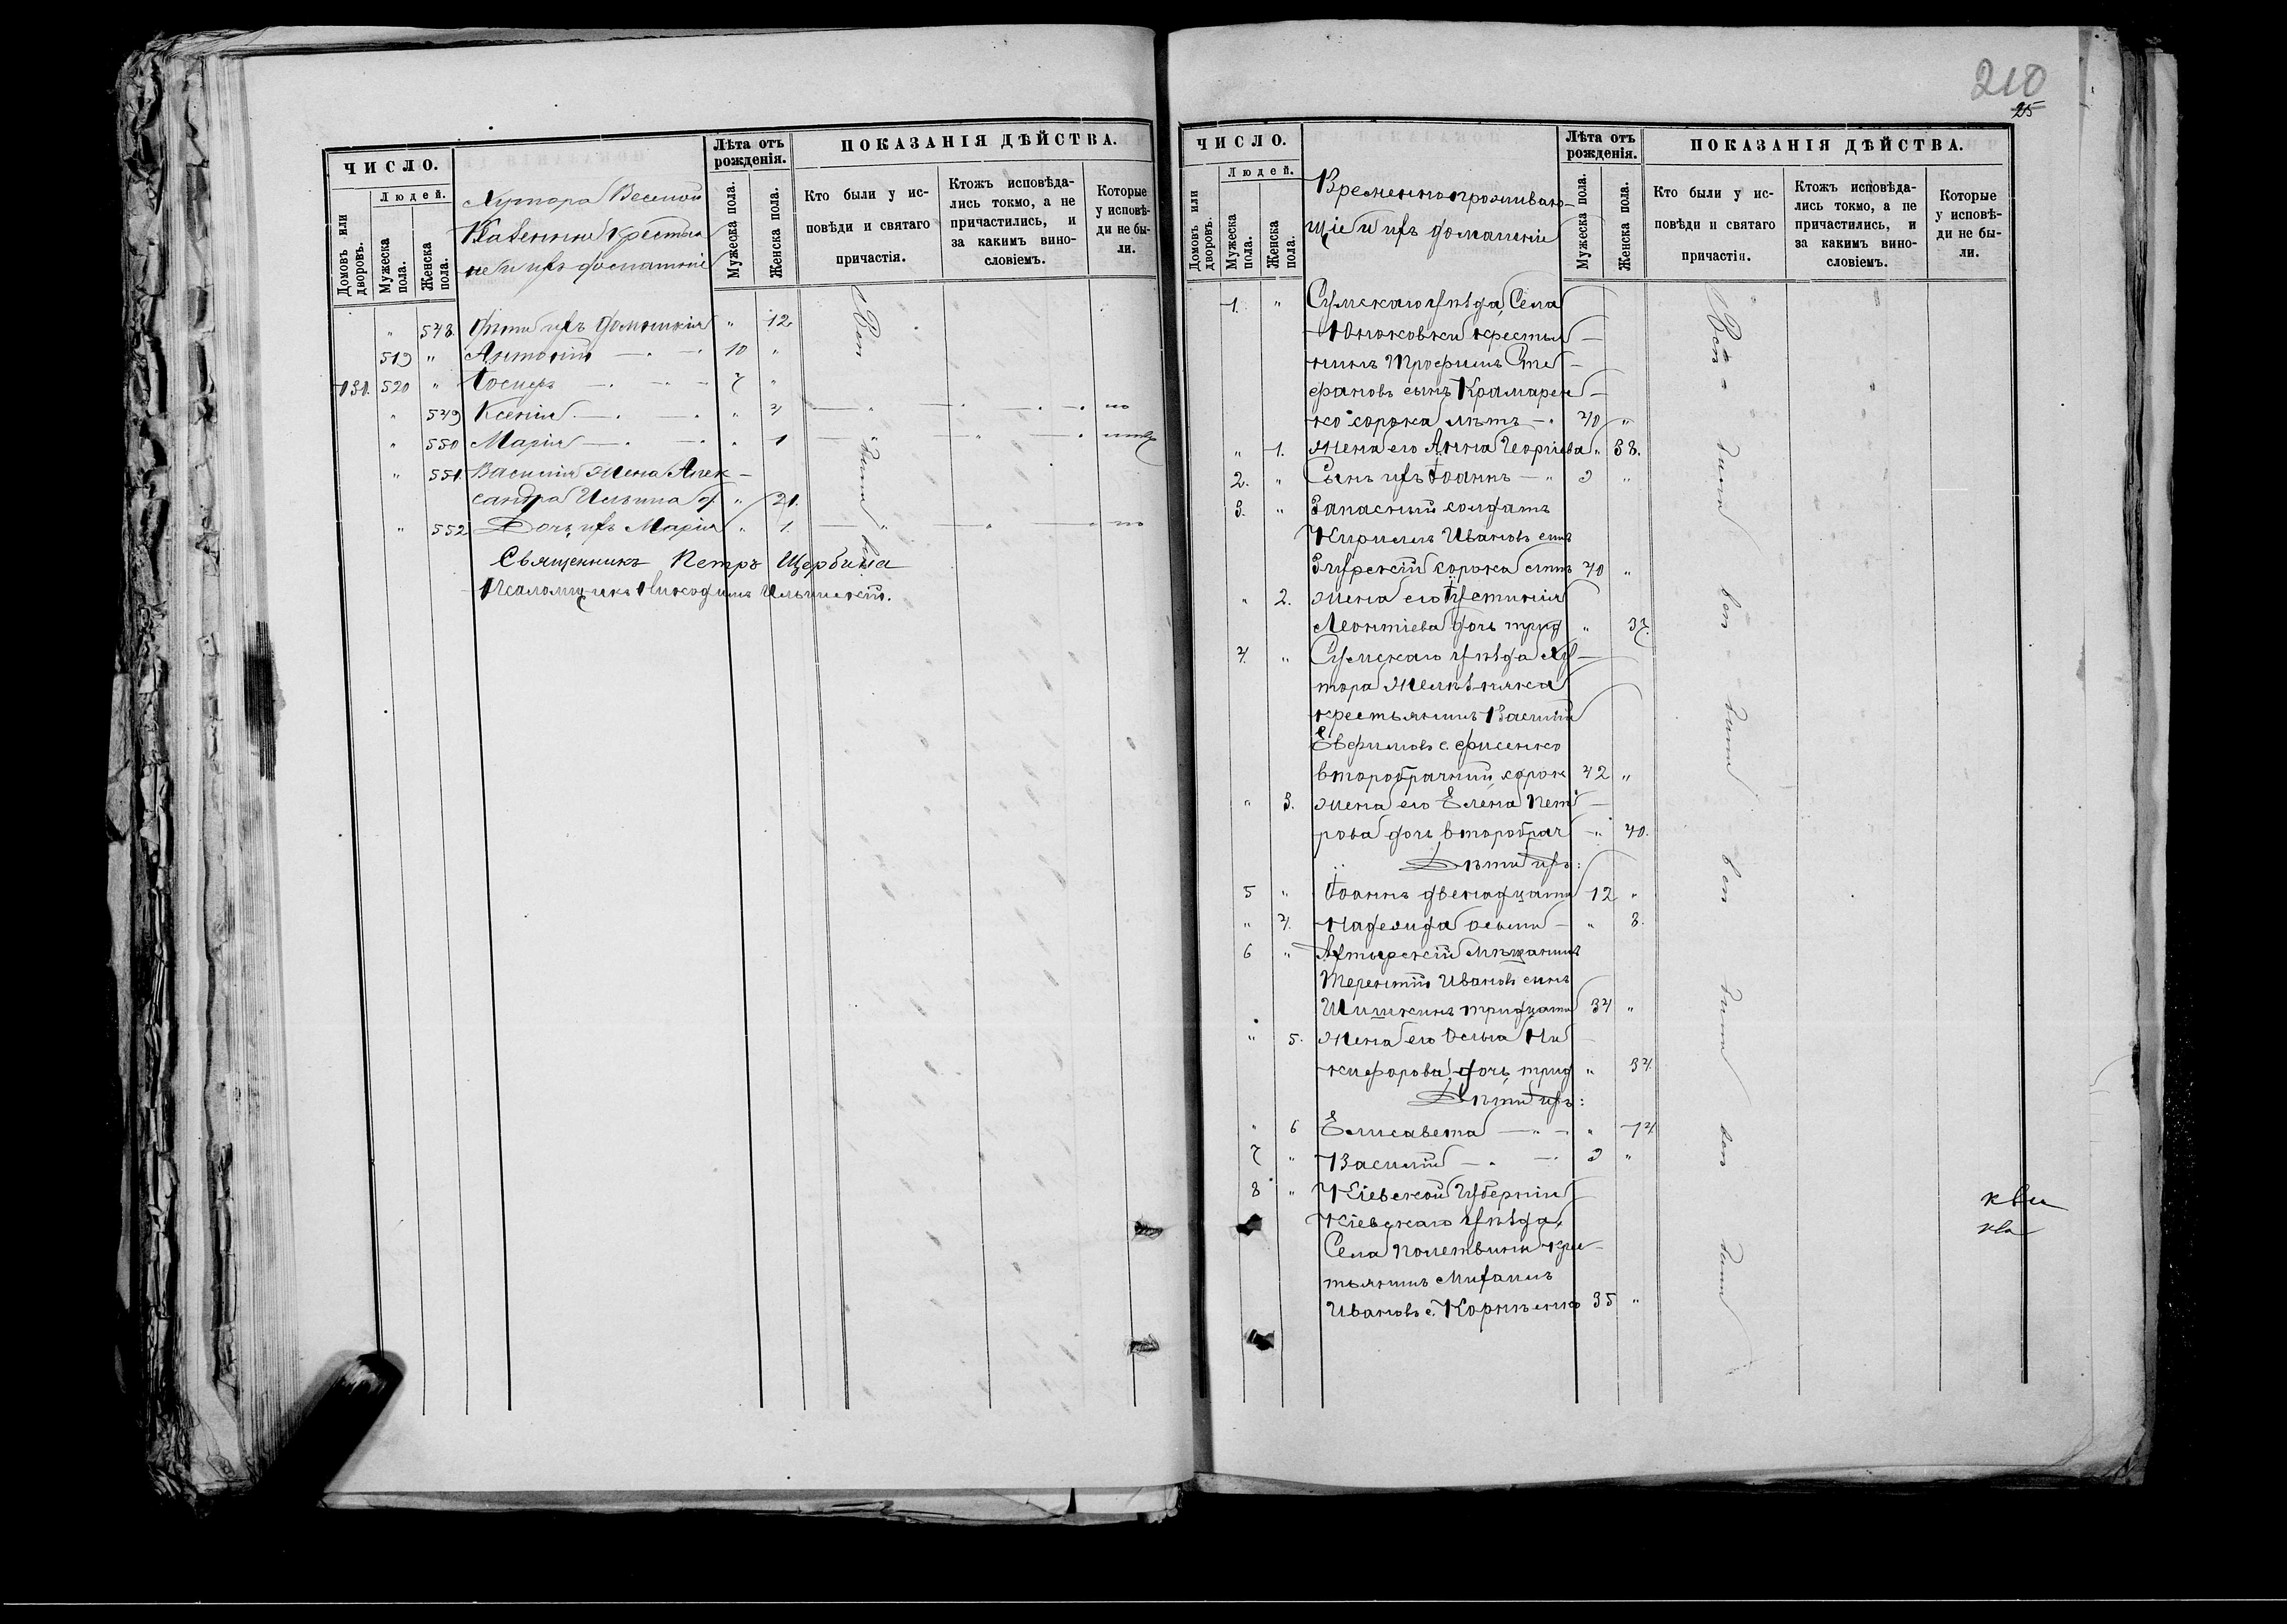 ЧИСЛО.
Людей.
Домовъ или дворовъ.
Мужеска пола.
Женска пола.
Хутора Веселой
Казенные крестья
не и ихъ домашніе
Лѣта отъ рожденія.
Мужеска пола.
Женска пола.
ПОКАЗАНІЯ ДѢЙСТВА.
Кто были у исповѣди и святаго причастія.
Ктожъ исповѣдались токмо, а не причастились, и за какимъ винословіемъ.
Которые у исповѣди не были.
" 548. Дѣти ихъ " 12
519 " Антоній — 10 "
131. 520 " Іосифъ — 7 "
" 549 Ксенія — " 4 по
" 550 Марія — " 1
" 551. Василія жена Алек-
сандра Ильина д " 21.
" 552 Дочь ихъ Марія " 1. по
Священникъ Петръ Щербина
Псаломщикъ Никодимъ
Вси были вси
210
25
ЧИСЛО.
Людей.
Домовъ или дворовъ.
Мужеска пола.
Женска пола.
Временно прожива
щіе и ихъ домашніе
Лѣта отъ рожденія.
Мужеска пола.
Женска пола.
ПОКАЗАНІЯ ДѢЙСТВА.
Кто были у исповѣди и святаго причастія.
Ктожъ исповѣдались токмо, а не причастились, и за какимъ винословіемъ.
Которые у исповѣди не были.
1. " Сумскаго уѣзда, Села
Юнаковки крестья-
нинъ Трофимъ Сте-
фановъ сынъ Крамарен-
ко сорока лѣтъ — 40 "
" 1. Жена его Анна Георгіева " 38.
2. " Сынъ ихъ Іоаннъ — " "
3. " Запасный солдатъ
Кириллъ Ивановъ сынъ
сорока 40 "
" 2. Жена его Іустинія
Леонтіева дочь трид " 37.
4. " Сумскаго уѣзда Ху-
тора
крестьянинъ Василій
Евфимовъ с. Фисенко
второбрачный, сорок 42 "
" 3. Жена его Елена Пет-
рова дочь второбрач — " 40.
Дѣти ихъ:
5 " Іоаннъ двенадцати 12 "
" 4. Надежда осьми — " 8.
6 " Ахтырскій мѣщанинъ
Терентій Ивановъ сынъ
Шишкинъ тридцати 34 "
" 5. Жена его Ольга Ни
кифорова дочь, трид " 34.
Дѣти ихъ:
" 6 Елисавета — " 14
7 " Василій — "
8 " Кіевской Губерніи
Кіевскаго уѣзда,
Села крес-
тьянинъ Михаилъ
Ивановъ с. Корнѣенко 35 "
Вси были вси были вси были вси были